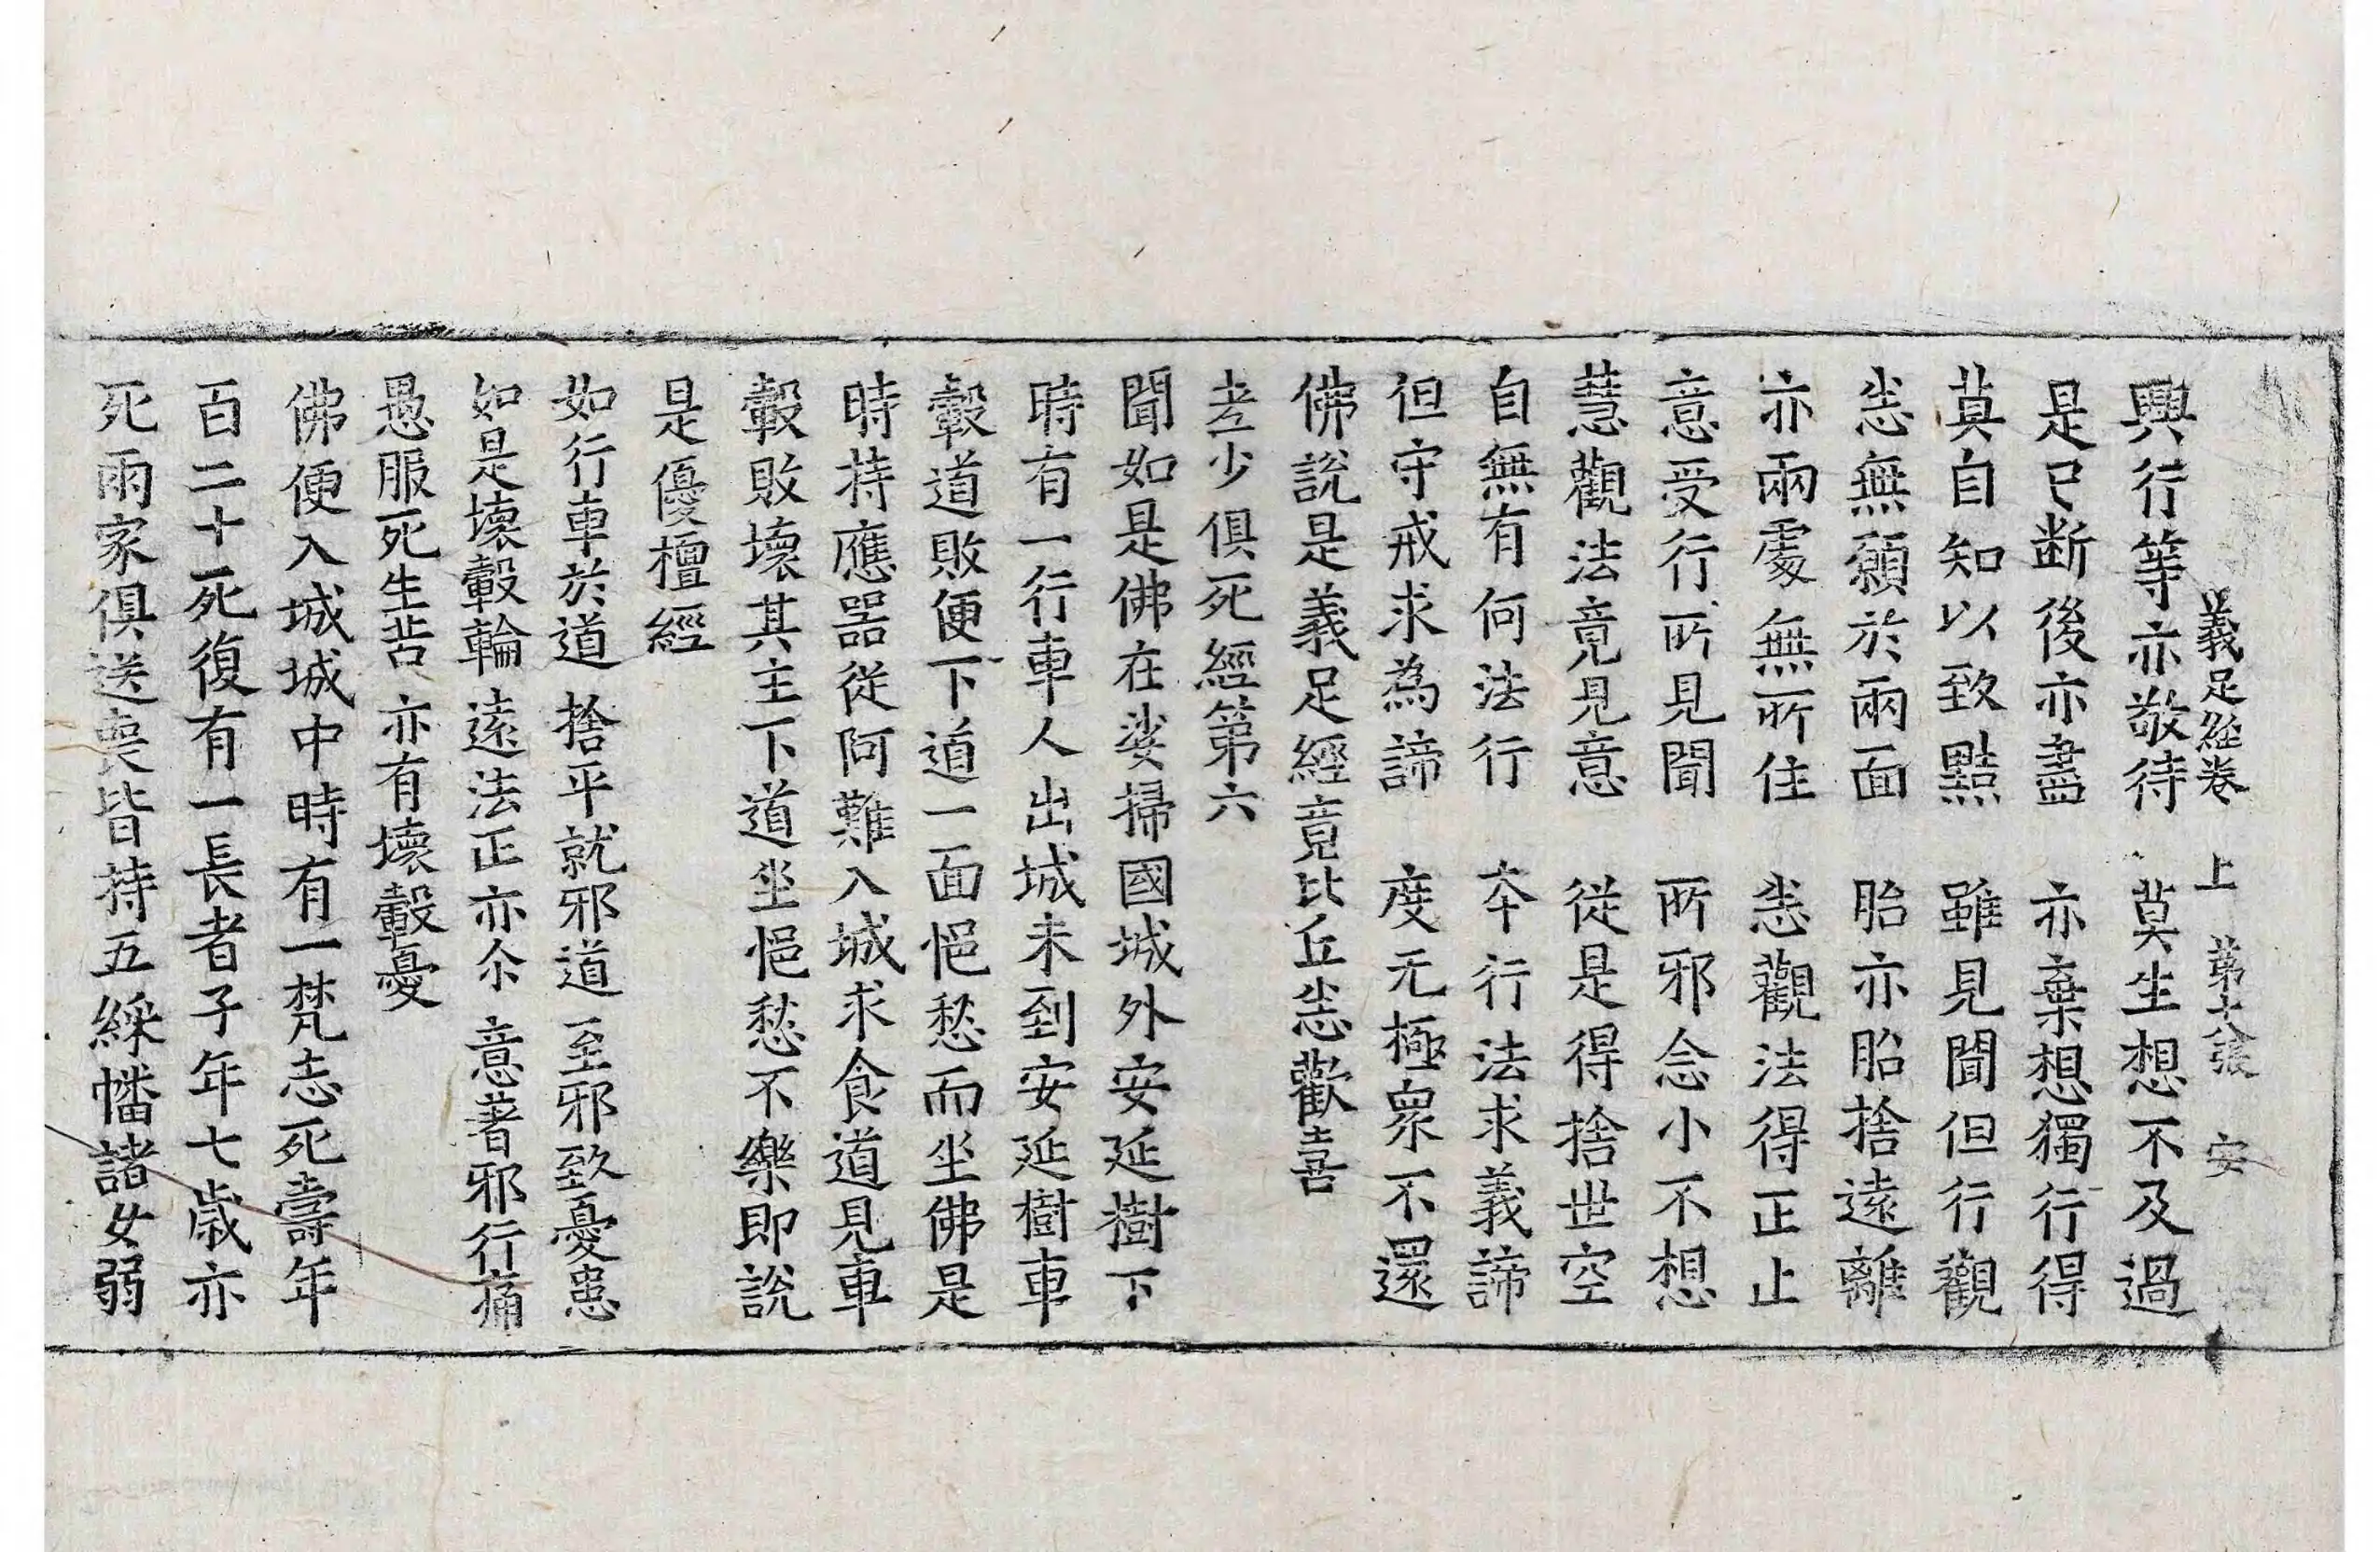 義足經卷上 第十八張 安
興行等亦敬待 莫生想不及過
是已断後亦盡 亦棄想獨行得
莫自知以致黠 雖見聞但行觀
悉無願於兩面 胎亦胎捨遠離
亦兩處無所住 悉觀法得正止
意受行所見聞 所邪念小不想
慧觀法竟見意 從是得捨世空
自無有何法行 本行法求義諦
但守戒求為諦 度无極衆不還
佛說是義足經竟比丘悉歡喜
老少俱死經第六
聞如是佛在娑掃國城外安延樹下
時有一行車人出城未到安延樹車
轂道敗便下道一面悒愁而坐佛是
時持應器從阿難入城求食道見車
轂敗壞其主下道坐悒愁不樂即說
是優檀經
如行車於道 捨平就邪道 至邪致憂患
如是壞轂輪 遠法正亦尒 意著邪行痛
愚服死生苦 亦有壞轂憂
佛便入城城中時有一梵志死壽年
百二十死復有一長者子年七歲亦
死兩家俱送喪皆持五綵幡諸女弱